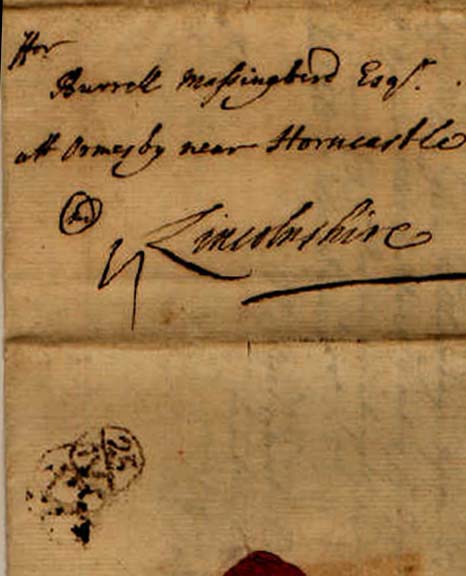 For
Burrell Maſsingberd Esqr.
att Ormesby near Horncastle
Lincolnshire
25